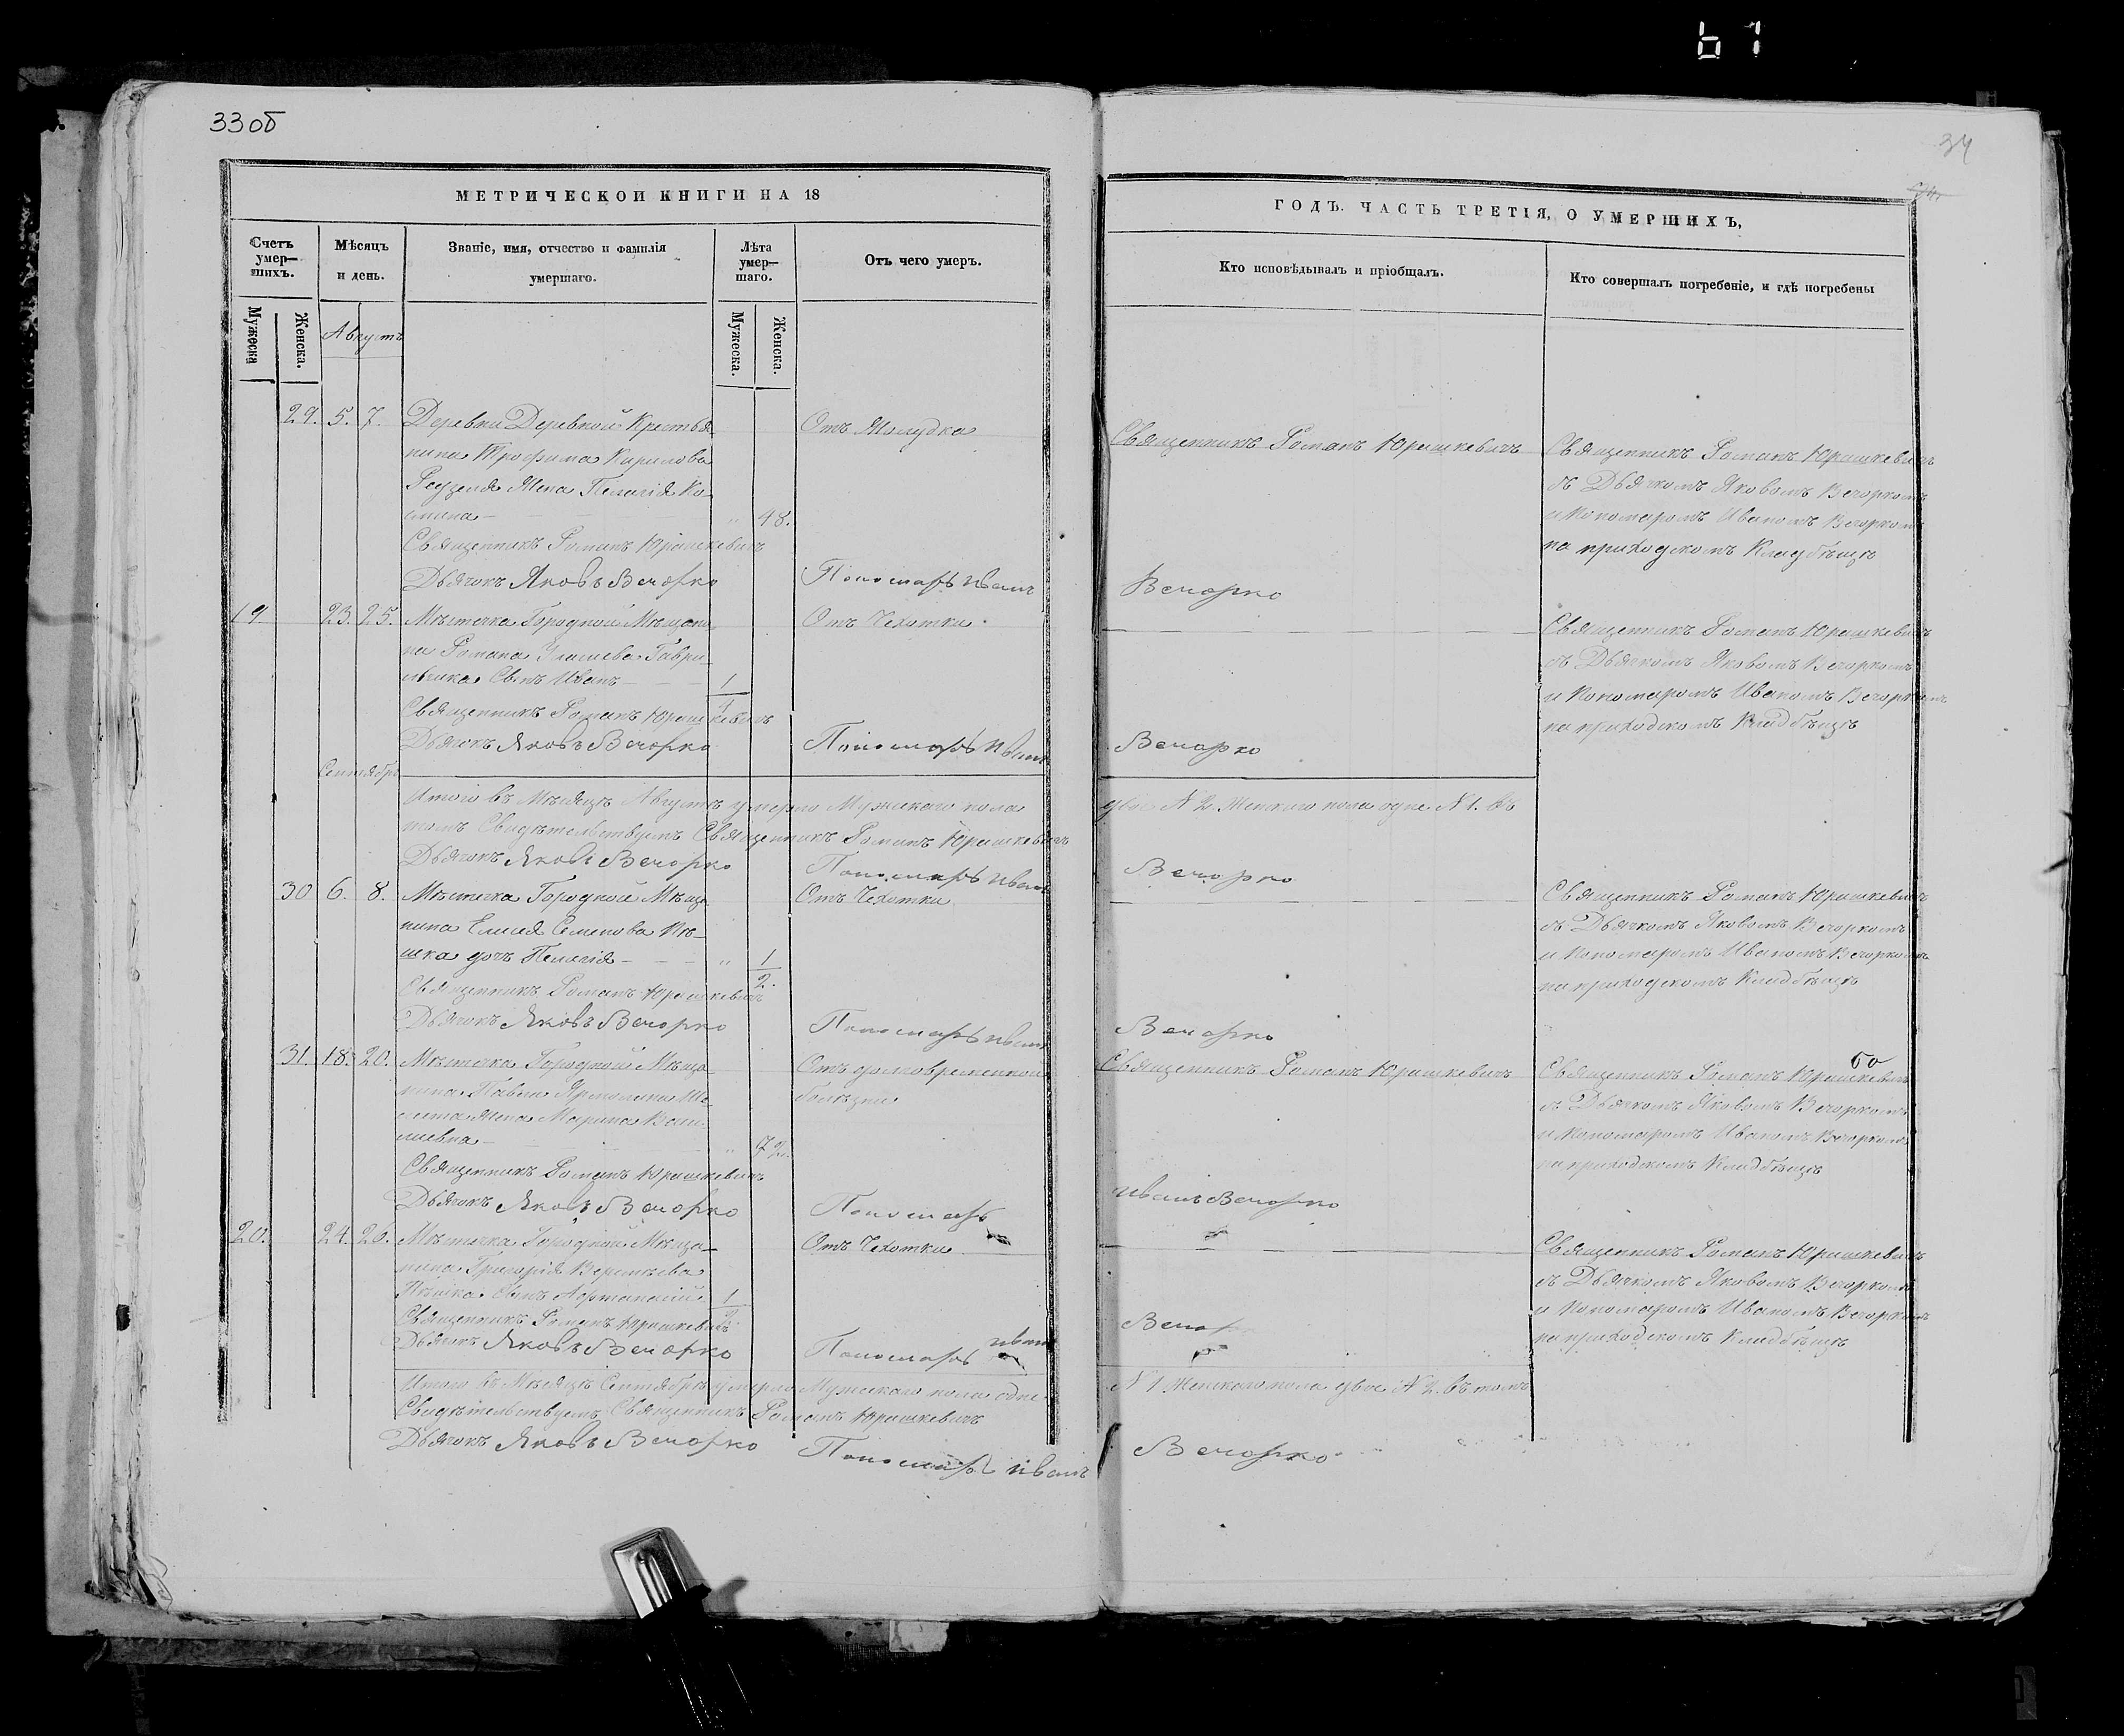 61
33 об
34
МЕТРИЧЕСКОЙ КНИГИ НА 18
Счетъ умер-шихъ.
Мѣсяцъ и день.
Званіе, имя, отчество и фамилія умершаго.
Лѣта умер-шаго.
Отъ чего умеръ.
Мужеска
Женска.
Мужеска.
Женска.
Августъ
29. 5. 7. Деревни Деревной Крестья- Отъ Желудка
нина Трофима Кирилова
жена Пелагія Ко-
" 48.
Священникъ Романъ Юрашкевичъ
Дьячокъ Яковъ Вечорко Пономарь Иванъ
19 23. 25. Мѣстечка Городной Мѣщани- Отъ Чехотки
на Романа Гаври-
Сынъ Иванъ - - - 1/4
Священникъ Романъ Юрашкевичъ
Дьячокъ Яковъ Вечорко Пономарь Иванъ
Сентябрь
Итого въ Мѣсяцѣ Августѣ умерло Мужскаго пола
томъ Свидѣтельствуемъ Священникъ Романъ Юрашкевичъ
Дьячокъ Яковъ Вечорко Пономарь Иванъ
30 6. 8. Мѣстечка Городной Мѣща- Отъ Чехотки
нина Елисея Семенова
дочь Пелагія - - - " 1/2.
Священникъ Романъ Юрашкевичъ
Дьячокъ Яковъ Вечорко Пономарь Иванъ
31. 18. 20. Мѣстечка Городной Мѣща- Отъ долговременной
нина Павла Ярмолина Ше- болѣзни
жена Марина Васи-
лиевна - " 72.
Священникъ Романъ Юрашкевичъ
Дьячокъ Яковъ Вечорко Пономарь
20. 24. 26. Мѣстечка Городной Мѣща- Отъ Чехотки
нина Григорія Веремѣева
Сынъ 1/2
Священникъ Романъ Юрашкевичъ
Дьячокъ Яковъ Вечорко Пономарь Иванъ
Итого въ Мѣсяцѣ Сентябрѣ умерло Мужскаго пола одне
Свидѣтельствуемъ Священникъ Романъ Юрашкевичъ
Дьячокъ Яковъ Вечорко Пономарь Иванъ
ГОДЪ. ЧАСТЬ ТРЕТІЯ, О УМЕРШИХЪ,
Кто исповѣдывалъ и пріобщалъ.
Кто совершалъ погребеніе, и гдѣ погребены
Священникъ Романъ Юрашкевичъ Священникъ Романъ Юрашкевичъ
съ Дьячкомъ Яковомъ Вечоркомъ
и Пономаромъ Иваномъ Вечоркомъ
на приходскомъ Кладбѣщѣ
Вечорко
Священникъ Романъ Юрашкевичъ
съ Дьячкомъ Яковомъ Вечоркомъ
и Пономаромъ Иваномъ Вечоркомъ
на приходскомъ Кладбѣщѣ
Вечорко
двое N 2. Женскаго пола одне N 1. въ
Вечорко
Священникъ Романъ Юрашкевичъ
съ Дьячкомъ Яковомъ Вечоркомъ
и Пономаромъ Иваномъ Вечоркомъ
на приходскомъ Кладбѣщѣ
Вечорко
Священникъ Романъ Юрашкевичъ Священникъ Романъ Юрашкевичъ
съ Дьячкомъ Яковомъ Вечоркомъ
и Пономаромъ Иваномъ Вечоркомъ
на приходскомъ Кладбѣщѣ
Иванъ Вечорко
Священникъ Романъ Юрашкевичъ
съ Дьячкомъ Яковомъ Вечоркомъ
и Пономаромъ Иваномъ Вечоркомъ
на приходскомъ Кладбѣщѣ
N 1 Женскаго пола двое N 2. въ томъ
Вечорко